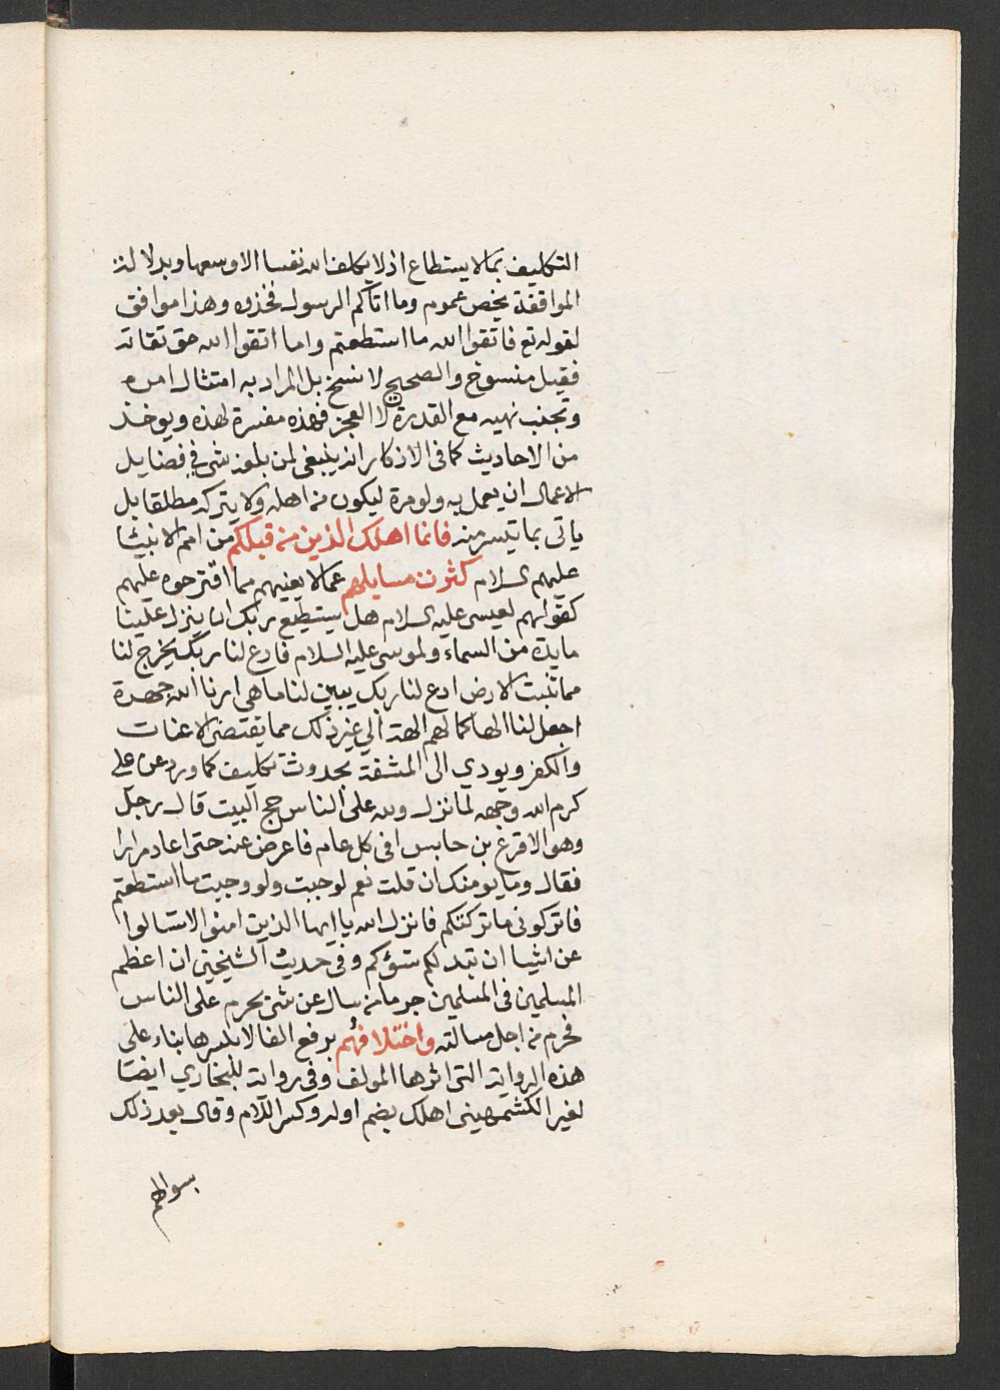 التكليف بمالا يستطاع اذ لا يكلف الله نفسا الا وسعها وبدلالة
الموافقة يخص عموم وما اتاكم الرسول فخذوه وهذا موافق
لقوله تع فاتقوا الله ما استطعتم واما اتقوا الله حق تقاته
فقيل منسوخ والصحيح لا نسخ بل المراد به امتثال امره
وتجنب نهيه مع القدرة لا العجز فهذه مفسرة لهذه ويوخذ
من الاحاديث كما في الاذكار انه ينبغي لمن بلغه شي في فضايل
الاعمال ان يعمل به ولو مرة ليكون من اهله ولا يتركه مطلقا بل
ياتي بما تيسر منه فانما اهلك الذين من قبلكم من امم الانبيا
عليهم السلام كثرت مسايلهم عما لا يعنيهم مما اقترحوه عليهم
كقولهم لعيسى عليه السلام هل يستطيع ربك ان ينزل علينا
مايدة من السماء ولموسى عليه السلام فادع لنا ربك يخرج لنا
مما تنبت الارض ادع لنا ربك يبين لنا ما هي ارنا الله جهرة
اجعل لنا الها كما لهم الهة الي غير ذلك مما يقتضي الاعنات
والكفر ويودي الى المشقة بحدوث تكليف كما ورد عن علي
كرم الله وجهه لما نزل ولله على الناس حج البيت قال رجل
وهو الاقرع بن حابس افي كل عام فاعرض عنه حتى اعاد مرارا
فقال وما يومنك ان قلت نعم لوجبت ولو وجبت ما استطعتم
فاتركوني ما تركتكم فانزل الله يا ايها الذين امنوا لا تسالوا
عن اشيا ان تبد لكم تسؤكم وفي حديث الشيخين ان اعظم
المسلمين في المسلمين جرما من سال عن شي يحرم على الناس
فحرم من اجل مسالته واختلافهم برفع الفا لا بكسرها بناء على
هذه الرواية التي اثرها المولف وفي رواية للبخاري ايضا
لغير الكشميهيني اهلك بضم اوله وكسر اللام وقال بعد ذلك
بسوالهم